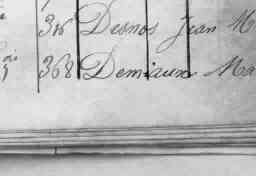 Desnos Jean M
368 Demiaux Ma